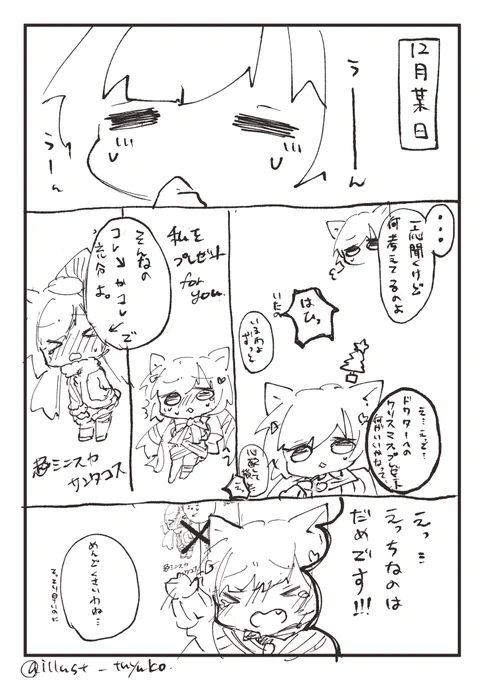 12月某日
うーーん
うーん
…
一応聞くけど
何考えてるのよ
はひっ
いたの
いるわよ
ずっと
え…えっと…
ドクターへの
クリスマスプレゼント
何がいいかなって…
私を
プレゼント
for
you.
そんなの
コレかコレで
充分よ。
超ミニスカ
サンタコス
えっ…
えっちなのは
だめです!!!
超ミニスカ
サンタコス
めんどくさいわね…
@illust_tuyuko.